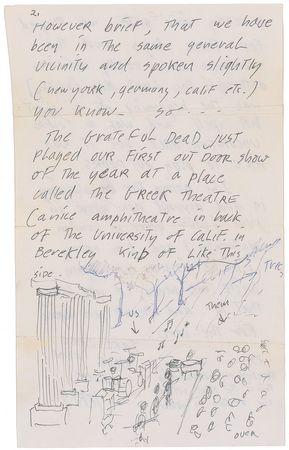 2.
However brief, that we have
been in the same general
vicinity and spoken slightly
(new york, germany, calif etc.)
you know... so....
The Grateful Dead just
played our first out door show
of the year at a place
called the Greek Theatre
(a nice amphitheatre in back
of the University of Calif. in
Berekley kind of like this
side.
Trees
us
Them
over